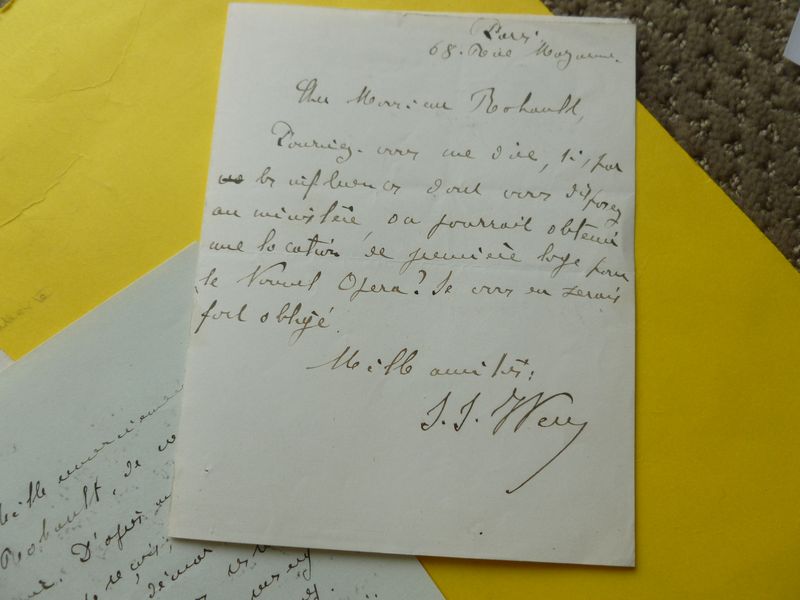 Paris
68. Rue Mazarine.
Cher Monsieur Rohault,
Pourriez-vous me dire, si, par
les influences dont vous disposez
au ministère, on pourrait obtenir
une location de première loge pour
le Nouvel Opera? Je vous en serais
fort obligé.
Mille amitiés:
J. J. Weiss
Mille
Rohault, de
D'après